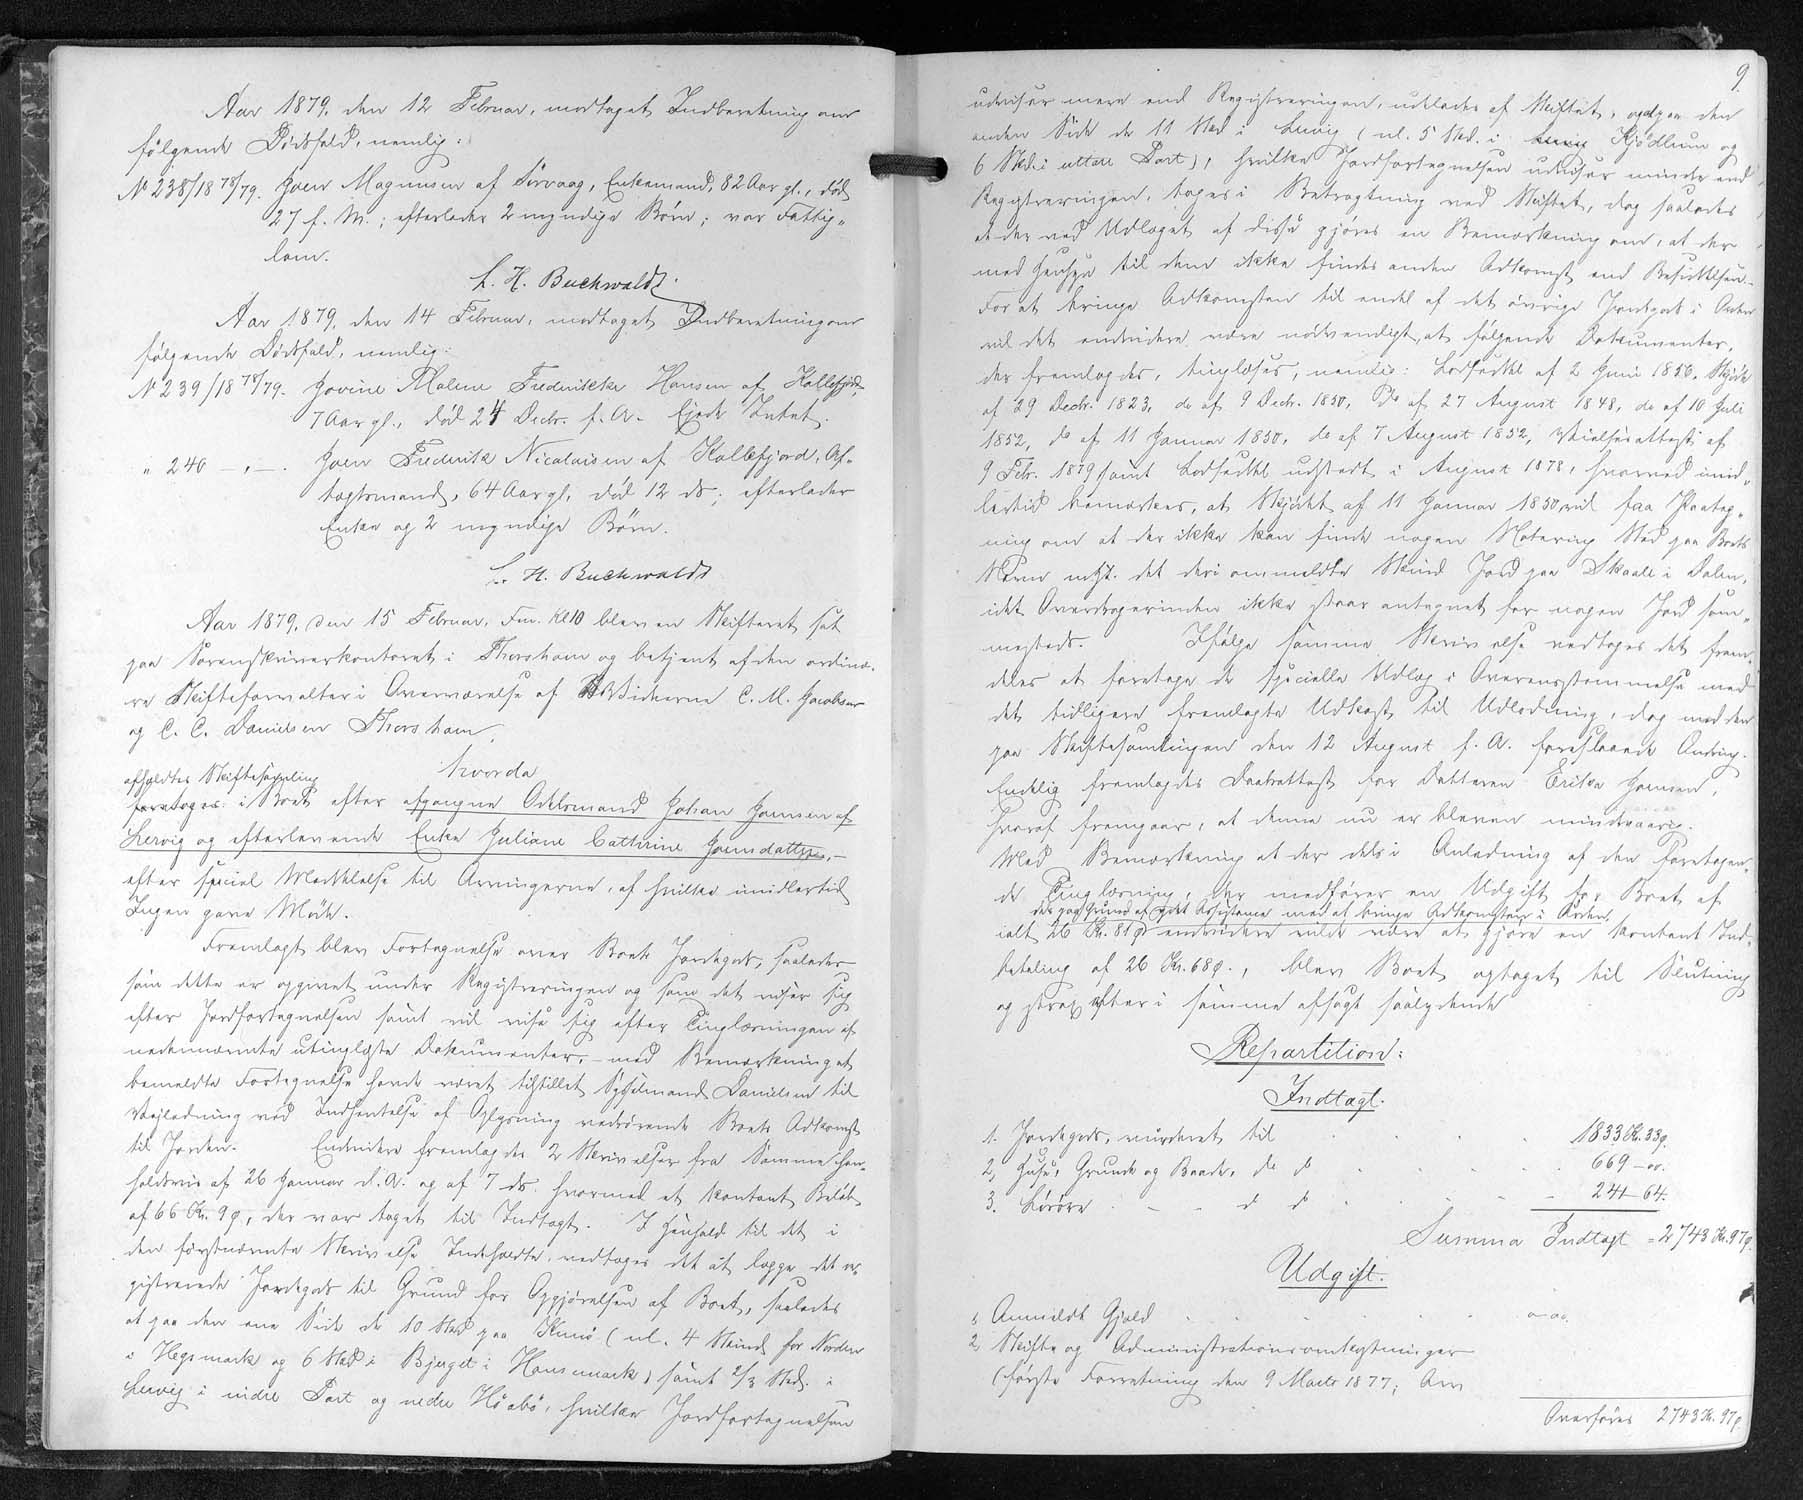 Aar 1879, den 12 Februar, modtaget Indberetning om
følgende Dødsfald, nemlig:
№ 238/18 78/79. Joen Magnusen af Sørvaag, Enkemand, 82 Aar gl., død
27 f. M.; efterlader 2 myndige Børn; var Fattig-
lem.
L. H. Buchwaldt.
Aar 1879, den 14 Februar, modtaget Indberetning om
følgende Dødsfald, nemlig:
№ 239/18 78/79. Jovine Malene Frederikke Hansen af Kollefjord,
7 Aar gl., død 24 Decbr. f. A. Ejede Intet.
" 240 — " —. Joen Frederik Nicolaisen af Kollefjord, Af-
tægtsmand, 64 Aar gl. død 12 ds; efterlader
Enke og 2 myndige Børn.
L. H. Buchwaldt
Aar 1879, den 15 Februar, Fm. Kl 10 blev en Skifteret sat
paa Sorenskriverkontoret i Thorshavn og betjent af den ordinæ-
re Skifteforvalter i Overværelse af Vidnerne C. M. Jacobsen
og C. C. Danielsen Thorshavn,
hvorda
afholdtes Skiftesamling
foretoges i Boet efter afgangne Odelsmand Johan Joensen af
Lervig og efterlevende Enke Juliane Cathrine Joensdatter, —
efter special Meddelelse til Arvingerne, af hvilke imidlertid
Ingen gave Møde.
Fremlagt blev Fortegnelse over Boets Jordegods, saaledes
som dette er opgivet under Registreringen og som det viser sig
efter Jordfortegnelsen samt vil vise sig efter Tinglæsningen af
nedennævnte utinglæste Dokumenter, — med Bemærkning at
bemeldte Fortegnelse havde været tilstillet Sysselmand Danielsen til
Vejledning ved Indhentelse af Oplysning vedrørende Boets Adkomst
til Jorden. Endvidere fremlagdes 2 Skrivelser fra Samme hen-
holdsvis af 26 Januar d. A. og af 7 ds. hvormed et kontant Beløb
af 66 Kr. 9 ø, der var taget til Indtægt. I Henhold til det i
den førstnævnte Skrivelse Indeholdte vedtoges det at lægge det re-
gistrerede Jordegods til Grund for Opgjørelsen af Boet, saaledes
at paa den ene Side de 10 Skd paa Kunø (nl. 4 Skind for Norden
i Hegsmark og 6 Skd i Bjerget i Hansmark) samt 2/3 Skd. i
Lervig i nidre Part og nedre Høabø, hvilke Jordfortegnelsen
9.
udviser mere end Registreringen, udelades af Skiftet, og paa den
anden Side de 11 Skd i Lervig (nl. 5 Skd. i Kjødlum og
6 Skd i uttere Part), hvilke Jordfortegnelsen udviser mindre end
Registreringen, tages i Betragtning ved Skiftet, dog saaledes
at der ved Udlæget af disse gjøres en Bemærkning om, at der
med Hensyn til dem ikke findes anden Adkomst end Besiddelsen. —
For at bringe Adkomsten til endel af det øvrige Jordegods i Orden
vil det endvidere være nødvendigt, at følgende Dokumenter,
der fremlagdes, tinglæses, nemlig: Lodseddel af 2 Juni 1856, Skjøde
af 29 Decbr. 1823, do af 9 Decbr. 1850, Do af 27 August 1848, do af 10 Juli
1852, do af 11 Januar 1850, do af 7 August 1852, Vielsesattest af
9 Febr. 1879 samt Lodseddel udstedt i August 1878, hvorved imid-
lertid bemærkes, at Skjødet af 11 Januar 1850 vil faa Paateg-
ning om at der ikke kan finde nogen Notering Sted paa Boets
Navn mht. det deri ommeldte Skind Jord paa Skaale i Dalen,
idet Overdragerinden ikke staar antegnet for nogen Jord sam-
mesteds. Ifølge samme Skrivelse vedtoges det frem-
deles at foretage de specielle Udlæg i Overensstemmelse med
det tidligere fremlagte Udkast til Udlodning, dog med den
paa Skiftesamlingen den 12 August f. A. foreslaaede Ændring.
Endelig fremlagdes Daabsattest for Datteren Erika Joensen,
hvoraf fremgaar, at denne nu er bleven mindreaarig.
Med Bemærkning at der dels i Anledning af den foretagen-
de Tinglæsning, der medfører en Udgift for Boet af
dels paa Grund af ydet Assistance med at bringe Adkomsten i Orden,
ialt 26 Kr. 81 ø endvidere vilde være at gjøre en kontant Ind-
betaling af 26 Kr. 68 ø., blev Boet optaget til Slutning
og strax efter i samme afsagt saalydende
Repartition:
Indtægt.
1. Jordegods, vurderet til 1833 Kr. 33 ø.
2, Huse, Grunde og Baade, do do 669 — 00.
3. Løsøre — — do do 241 — 64.
Summa Indtægt = 2743 Kr. 97 ø.
Udgift.
1, Anmeldt Gjæld 0 — 00.
2, Skifte og Administrationsomkostninger
(første Forretning den 9 Marts 1877; Arv
Overføres 2743 Kr. 97 ø.